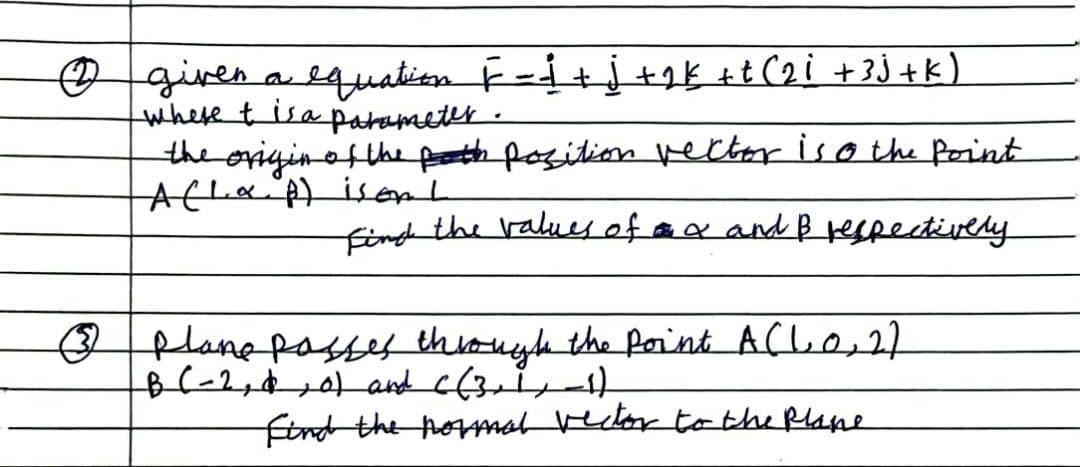 ② given a equation r̄ = i + j + 2k + t (2i + 3j + k)
where t is a parameter.
the origin of the position vector is o the point
A (1, α, β) is on L
find the values of α and β respectively
③ Plane passes through the point A (1, 0, 2)
B (-2, , 0) and C (3, 1, -1)
find the normal vector to the plane